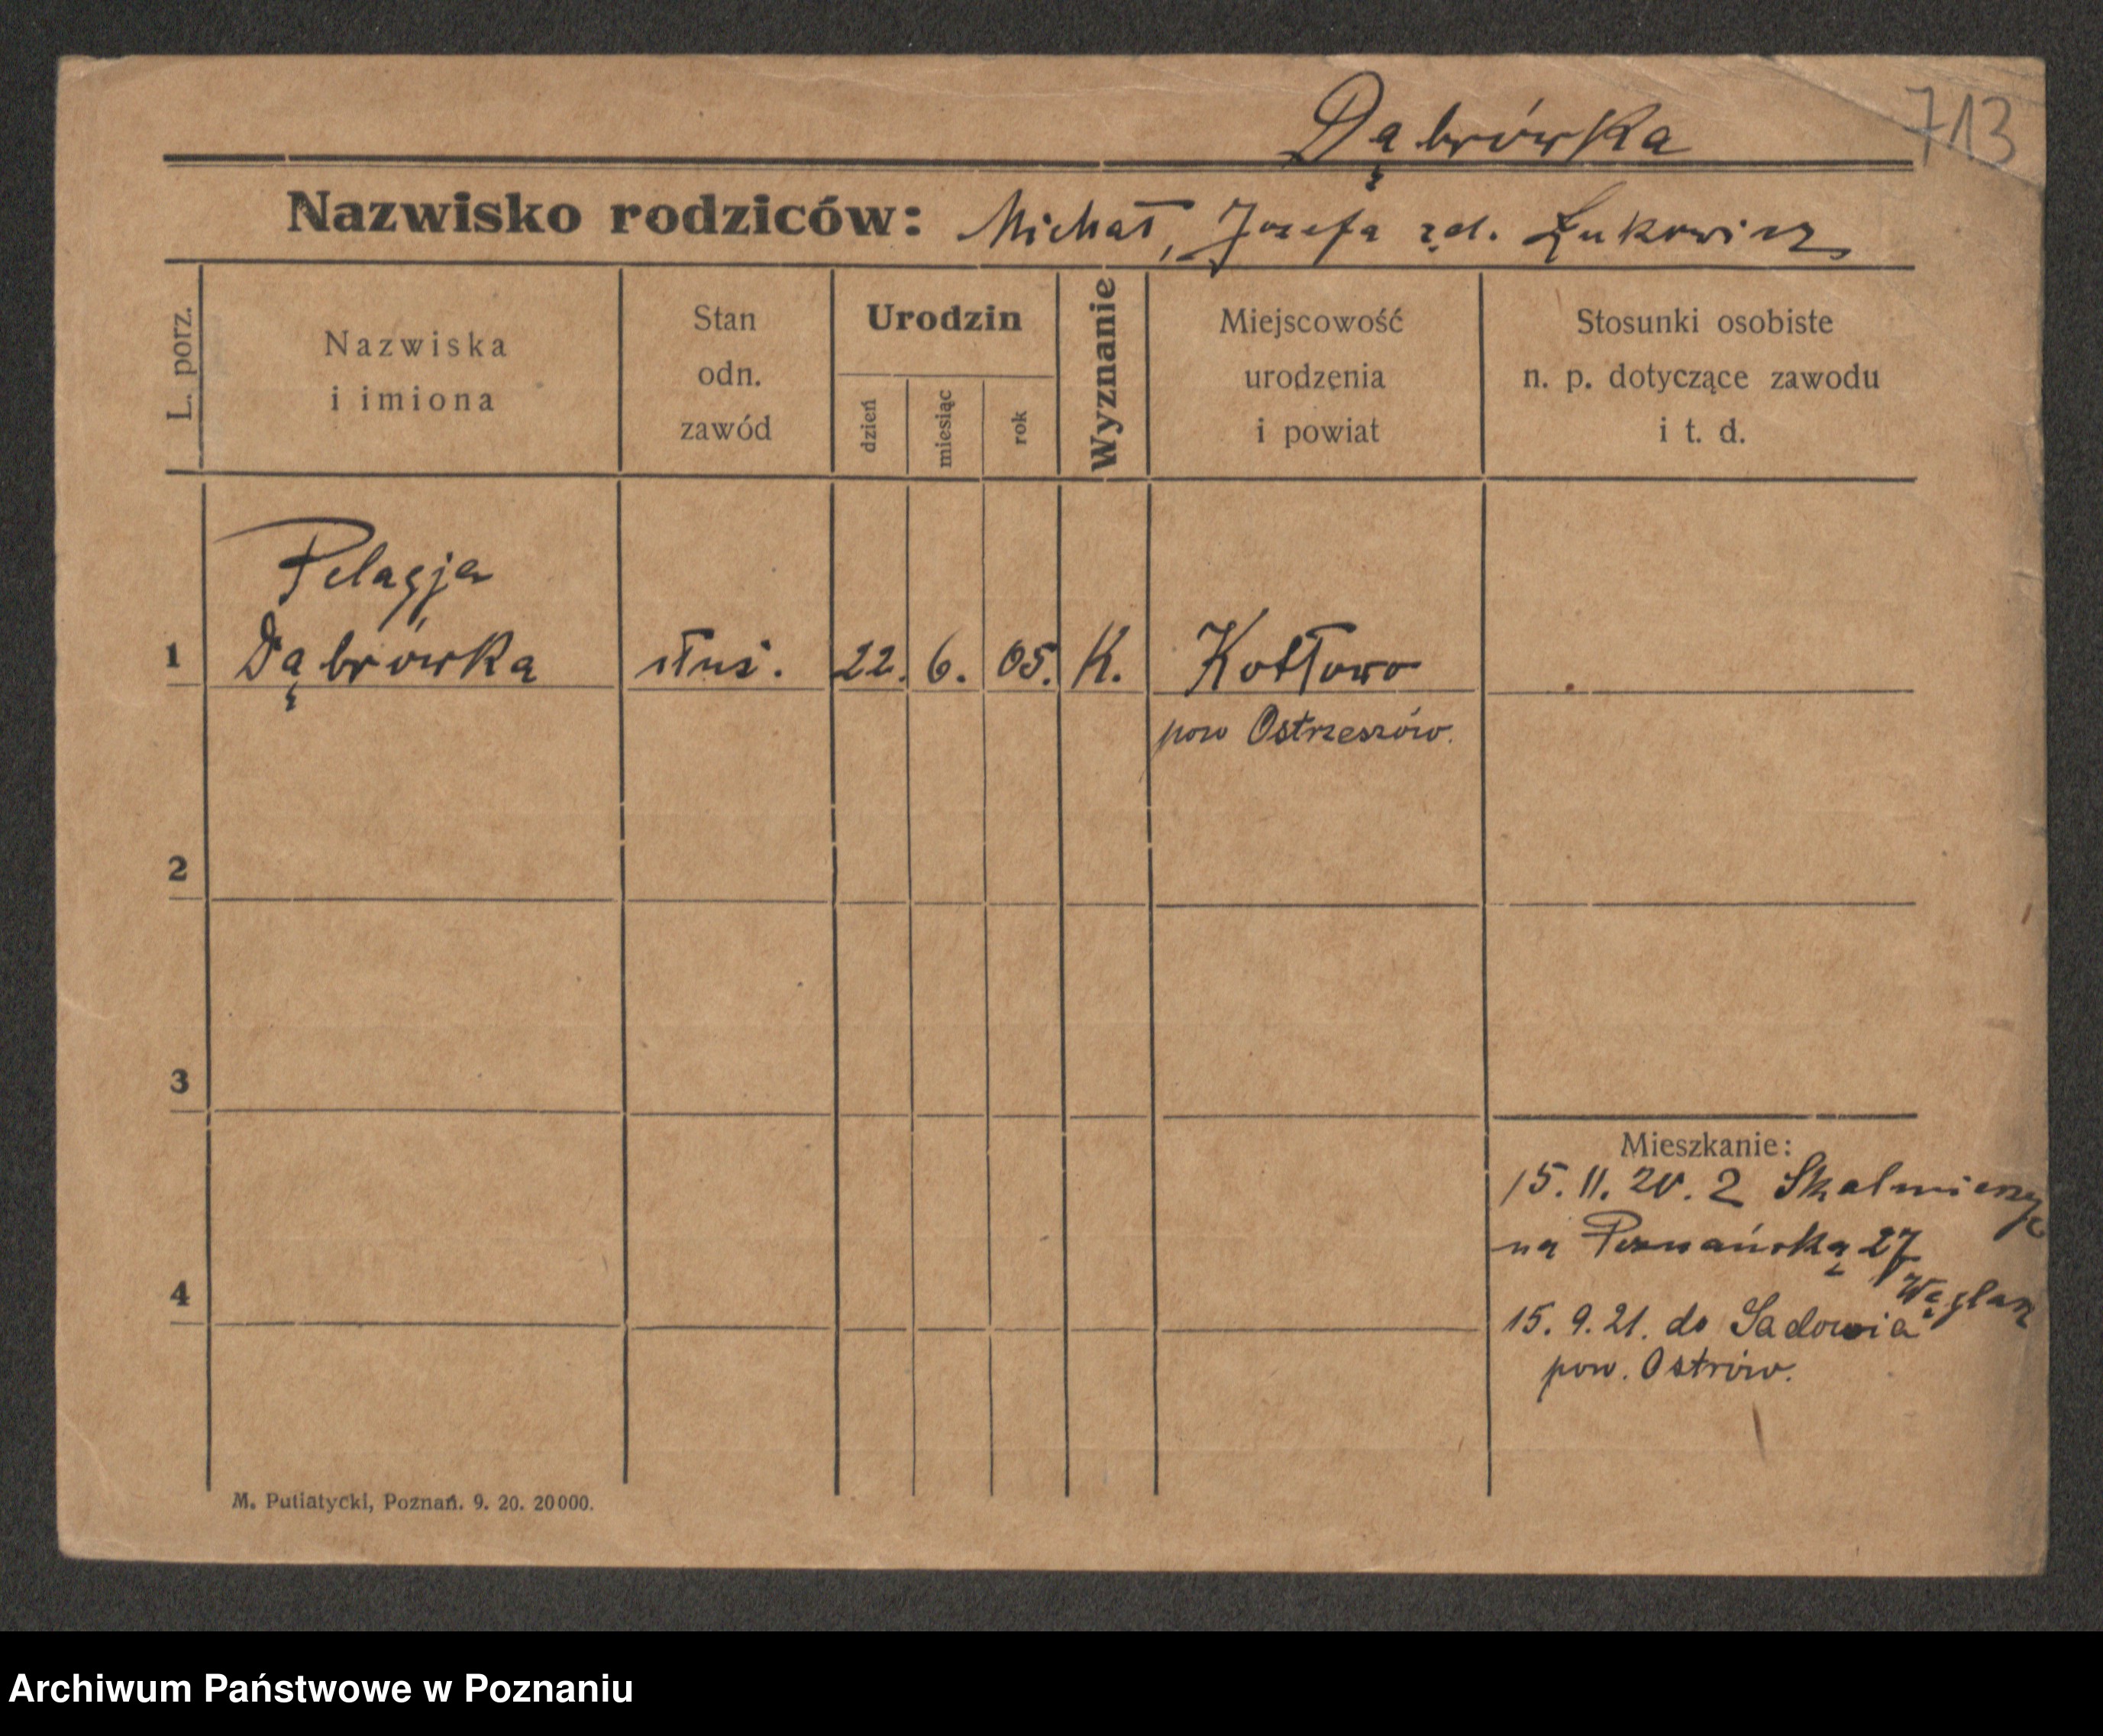 Dąbrówka
713
Nazwisko rodziców: Michał, Józefa zd. Łukowicz
L. porz.
Nazwiska
i imiona
Stan
odn.
zawód
Urodzin
dzień
miesiąc
rok
Wyznanie
Miejscowość
urodzenia
i powiat
Stosunki osobiste
n. p. dotyczące zawodu
i t. d.
Pelagja
1 Dąbrówka służ. 22. 6. 05. K. Kotłowo
pow Ostrzeszów.
2
3
4
Mieszkanie:
15. 11. 20. z Skalmierzyc
na Poznańską 27
Węglarz
15. 9. 21. do Sadowia
pow. Ostrów.
M. Putiatycki, Poznań. 9. 20. 20000.
Archiwum Państwowe w Poznaniu